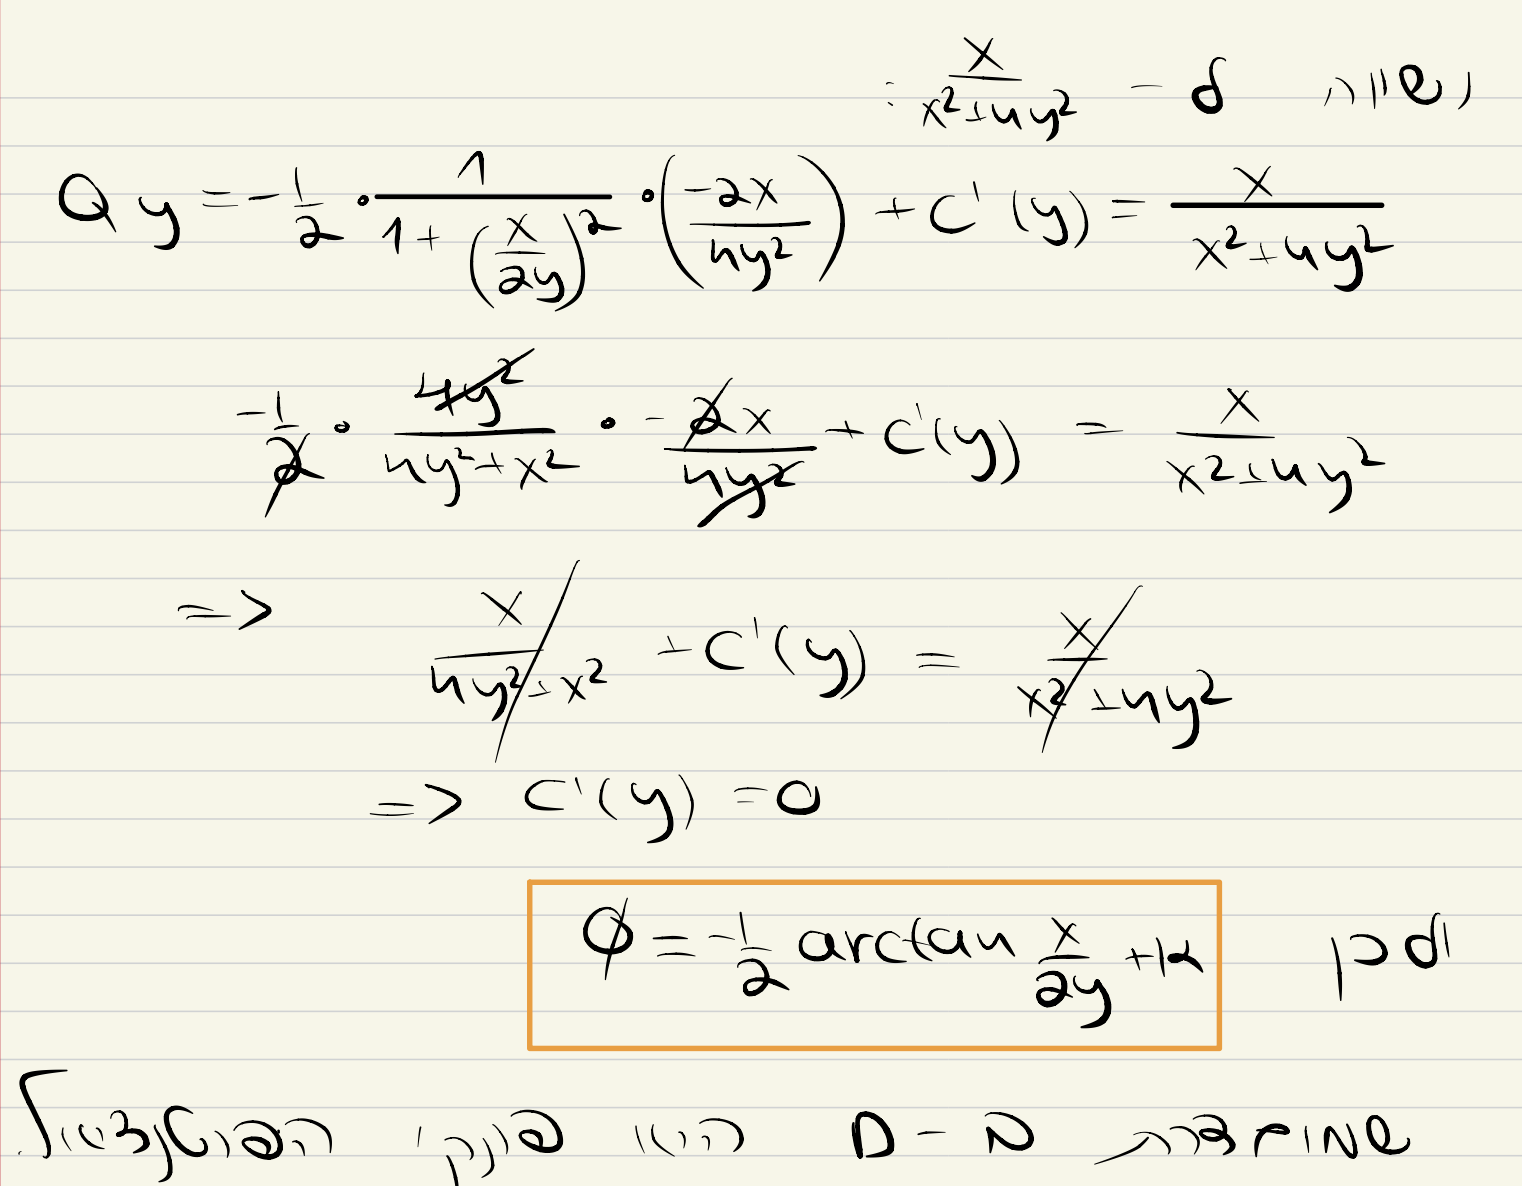 נשווה ל - x/(x²+4y²) :
Qy = -1/2 · 1/(1+(x/2y)²) · (-2x/4y²) + C'(y) = x/(x²+4y²)
-1/2 · 4y²/(4y²+x²) · -2x/4y² + C'(y) = x/(x²+4y²)
=> x/(4y²+x²) + C'(y) = x/(x²+4y²)
=> C'(y) = 0
ולכן φ = -1/2 arctan x/2y + K
שמוגדרת ב - D היא פונק' הפוטנציאל.